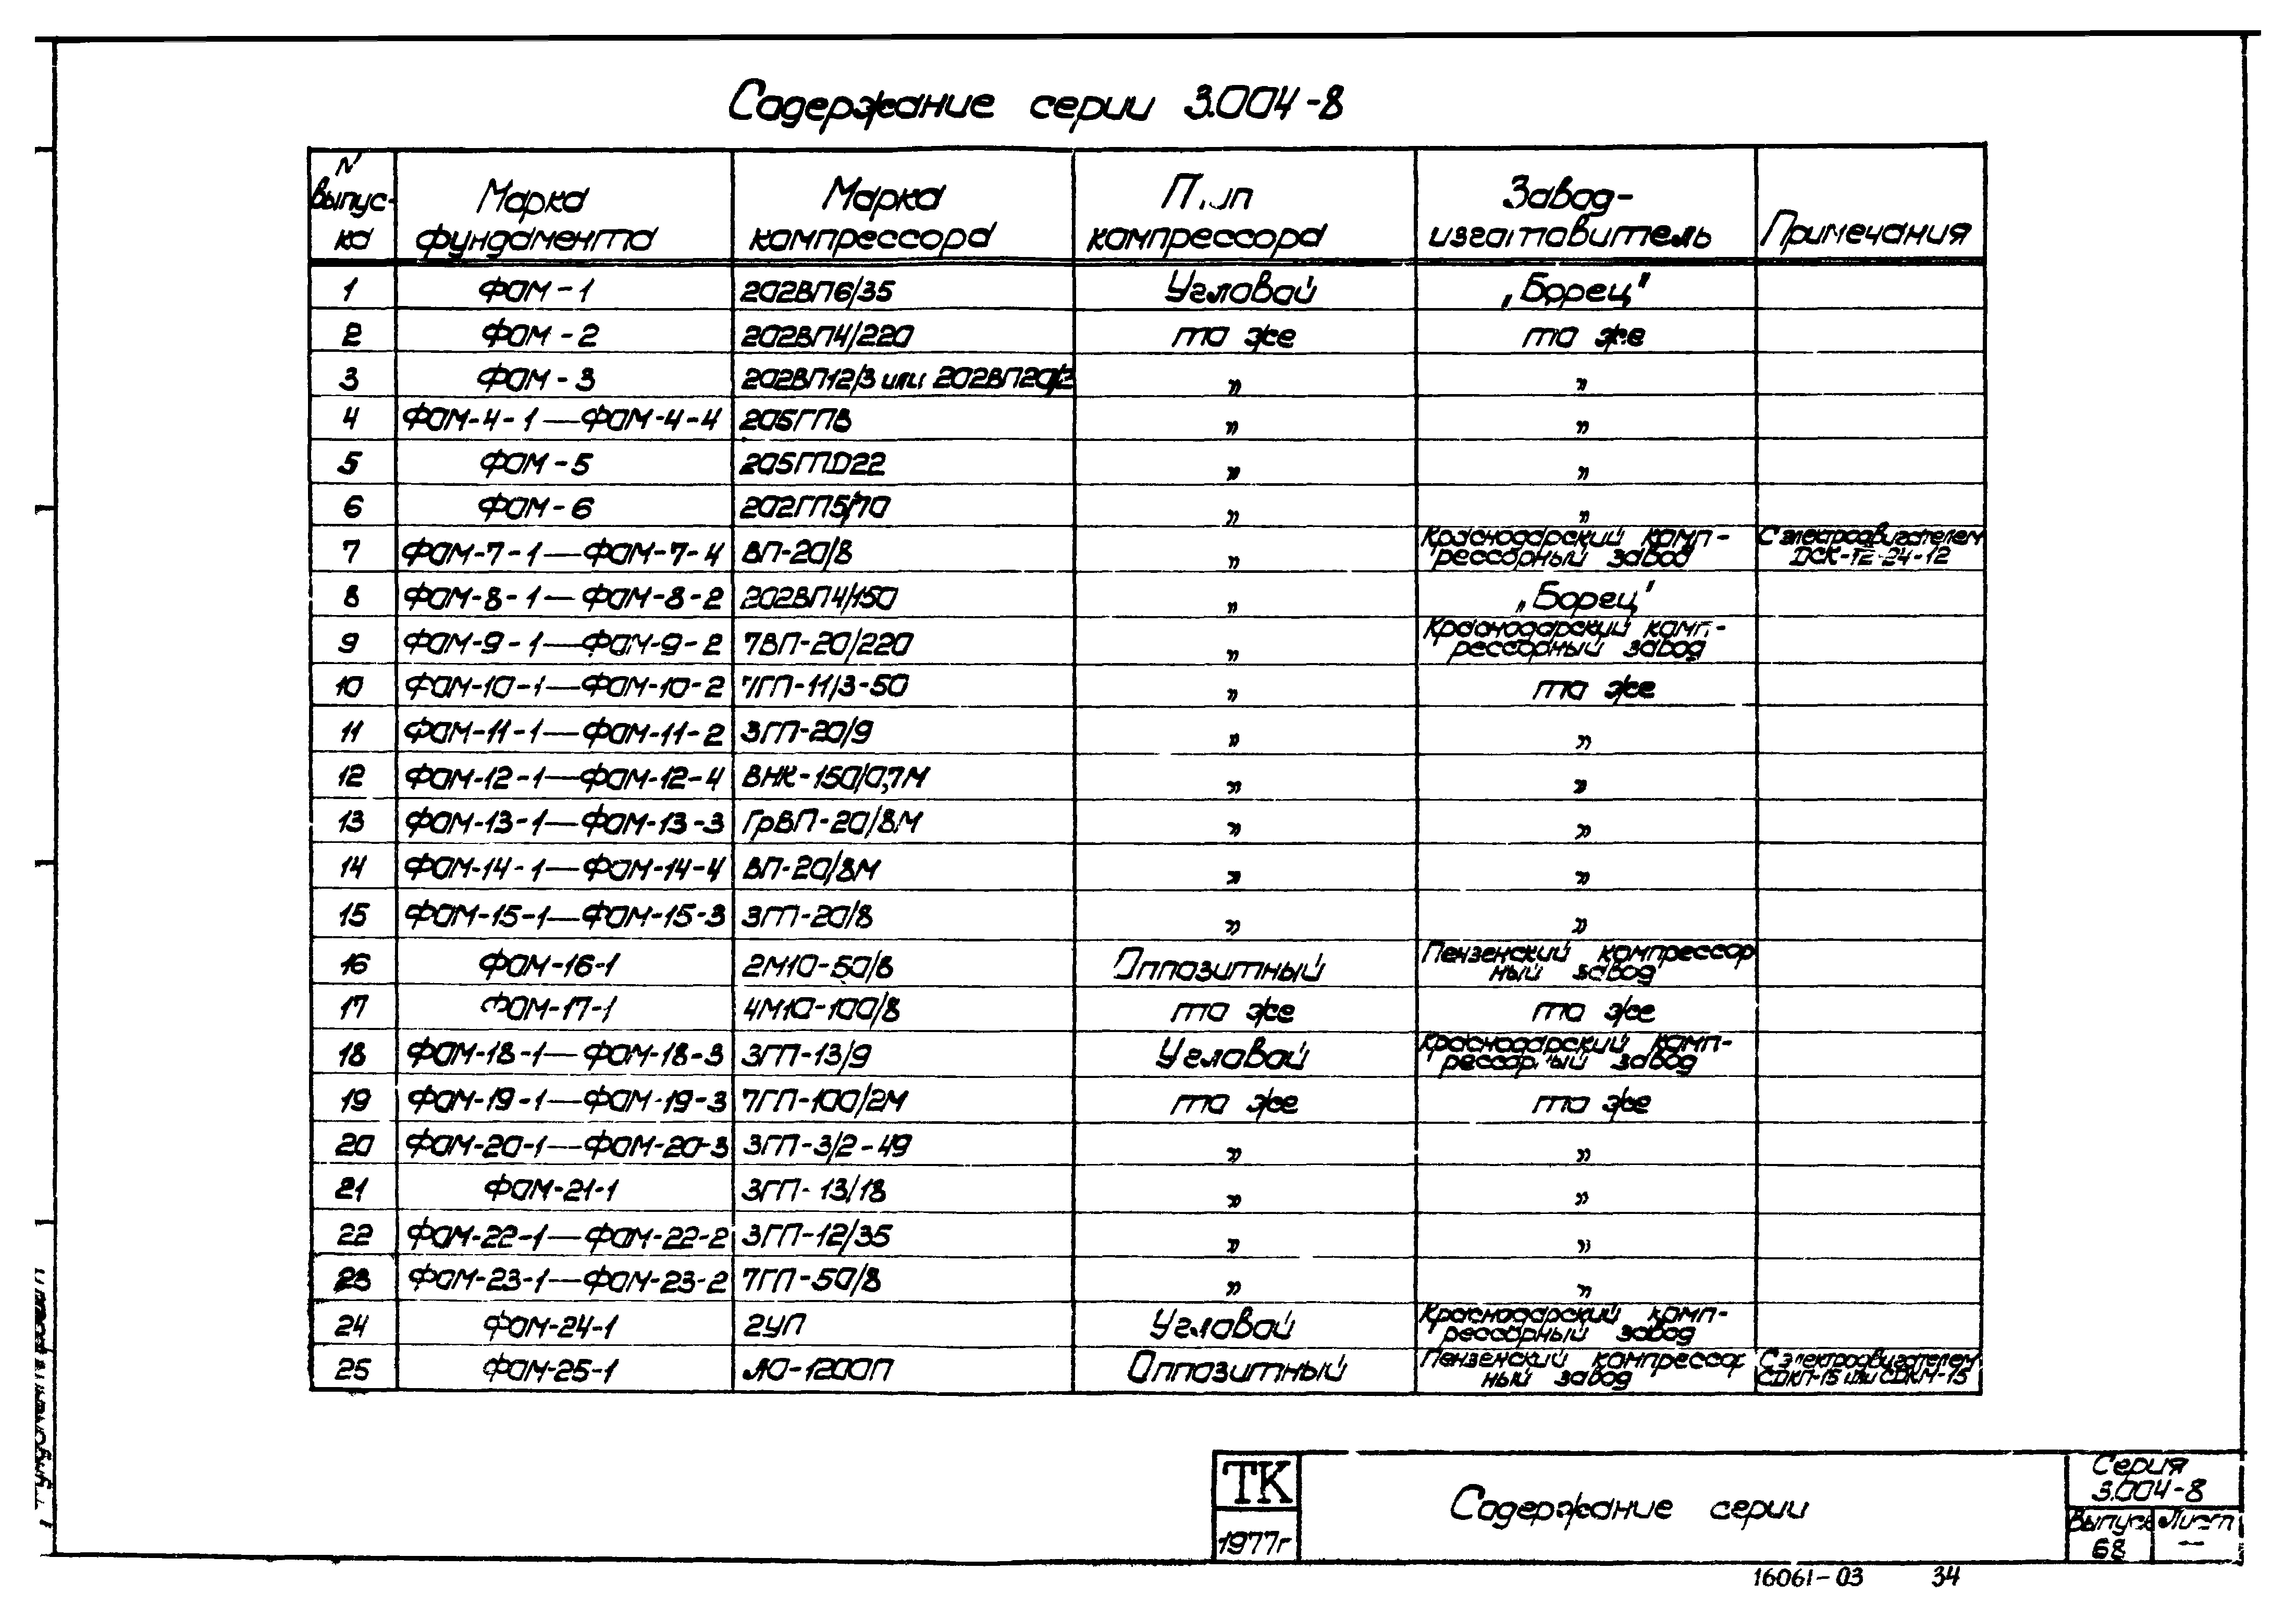 Содержание серии 3.004-8
N выпус-ка | Марка фундамента | Марка компрессора | Тип компрессора | Завод-изготовитель | Примечания
1 | ФОМ-1 | 202ВП6/35 | Угловой | „Борец"
2 | ФОМ-2 | 202ВП4/220 | то же | то же
3 | ФОМ-3 | 202ВП12/3 или 202ВП20/2 | „ | „
4 | ФОМ-4-1—ФОМ-4-4 | 205ГПВ | „ | „
5 | ФОМ-5 | 205ГПD22 | „ | „
6 | ФОМ-6 | 202ГП5/70 | „ | „
7 | ФОМ-7-1—ФОМ-7-4 | ВП-20/8 | „ | Краснодарский комп-рессорный завод | С электродвигателем ДСК-12-24-12
8 | ФОМ-8-1—ФОМ-8-2 | 202ВП4/150 | „ | „Борец"
9 | ФОМ-9-1—ФОМ-9-2 | 7ВП-20/220 | „ | Краснодарский комп-рессорный завод
10 | ФОМ-10-1—ФОМ-10-2 | 7ГП-11/3-50 | „ | то же
11 | ФОМ-11-1—ФОМ-11-2 | 3ГП-20/9 | „ | „
12 | ФОМ-12-1—ФОМ-12-4 | ВНК-150/0,7М | „ | „
13 | ФОМ-13-1—ФОМ-13-3 | ГрВП-20/8М | „ | „
14 | ФОМ-14-1—ФОМ-14-4 | ВП-20/8М | „ | „
15 | ФОМ-15-1—ФОМ-15-3 | 3ГП-20/8 | „ | „
16 | ФОМ-16-1 | 2М10-50/8 | Оппозитный | Пензенский компрессор ный завод
17 | ФОМ-17-1 | 4М10-100/8 | то же | то же
18 | ФОМ-18-1—ФОМ-18-3 | 3ГП-13/9 | Угловой | Краснодарский комп-рессорный завод
19 | ФОМ-19-1—ФОМ-19-3 | 7ГП-100/2М | то же | то же
20 | ФОМ-20-1—ФОМ-20-3 | 3ГП-3/2-49 | „ | „
21 | ФОМ-21-1 | 3ГП-13/18 | „ | „
22 | ФОМ-22-1—ФОМ-22-2 | 3ГП-12/35 | „ | „
23 | ФОМ-23-1—ФОМ-23-2 | 7ГП-50/8 | „ | „
24 | ФОМ-24-1 | 2УП | Угловой | Краснодарский комп-рессорный завод
25 | ФОМ-25-1 | ЛО-1200П | Оппозитный | Пензенский компрессор ный завод | С электродвигателем СДКП-15 или СДКМ-15
ТК
1977г
Содержание серии
Серия
3.004-8
Выпуск Лист
68 —
16061-03 34